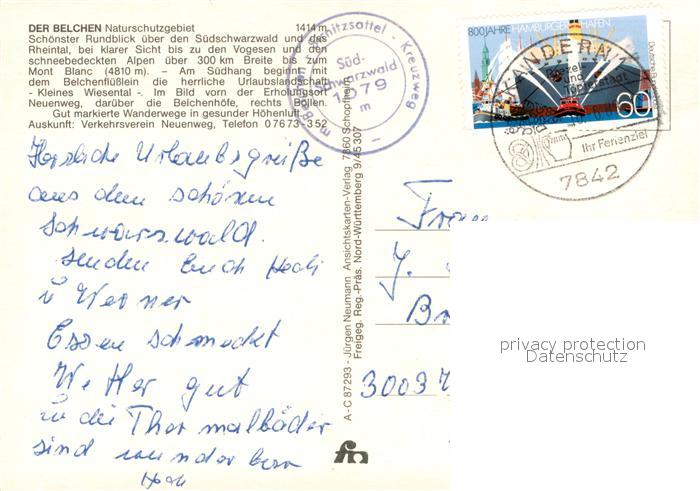 DER BELCHEN Naturschutzgebiet 1414 m
Schönster Rundblick über den Südschwarzwald und das
Rheintal, bei klarer Sicht bis zu den Vogesen und den
schneebedeckten Alpen über 300 km Breite bis zum
Mont Blanc (4810 m). – Am Südhang beginnt mit
dem Belchenflüßlein die herrliche Urlaubslandschaft
- Kleines Wiesental -. Im Bild vorn der Erholungsort
Neuenweg, darüber die Belchenhöfe, rechts Böllen.
Gut markierte Wanderwege in gesunder Höhenluft.
Auskunft: Verkehrsverein Neuenweg, Telefon 07673-352
Herzliche Urlaubsgrüße
aus dem schönen
Schwarzwald.
senden Euch Hedi
u Werner
Essen schmeckt
Wetter gut
u die Thermalbäder
sind wunderbar
Kreuzweg
Süd-
Schwarzwald
1079
m
A-C 87293 - Jürgen Neumann Ansichtskarten-Verlag 7860 Schopfheim
Freigeg. Reg.-Präs. Nord-Württemberg 9/45307
800 JAHRE HAMBURGER HAFEN
60
KANDERN
Brezel-
und
Töpferstadt
Ihr Ferienziel
7842
J.
3003
privacy protection
Datenschutz